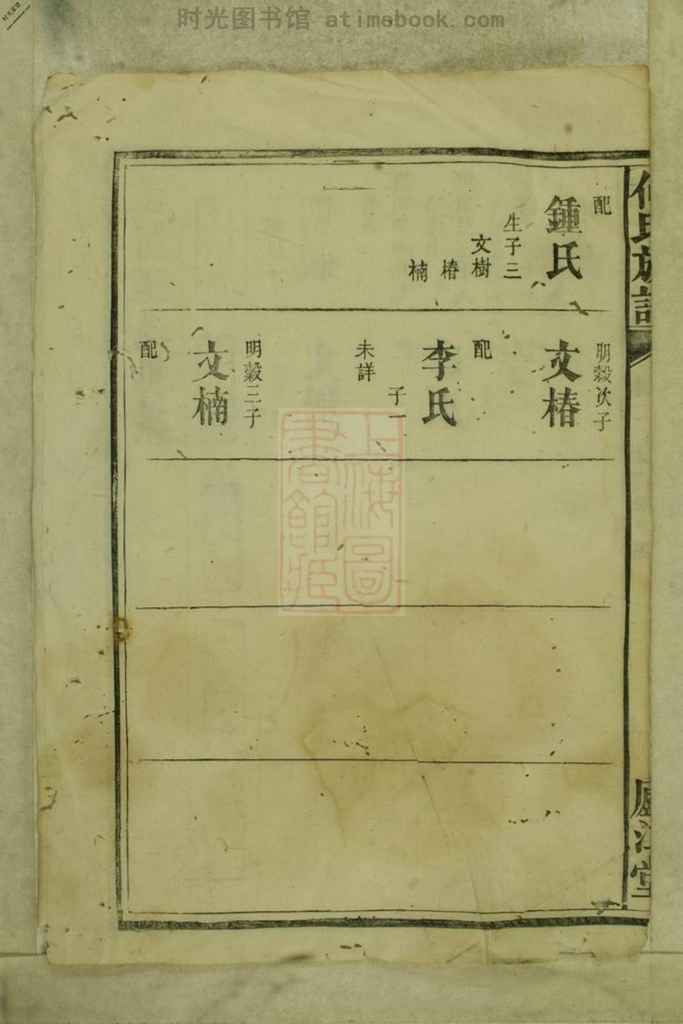 时光图书馆 atimebook.com
何氏族譜
廬江堂
配
鍾氏
生子三
文樹
椿
楠
明穀次子
文椿
配
李氏
子一
未詳
明穀三子
文楠
配
上海圖
書館藏